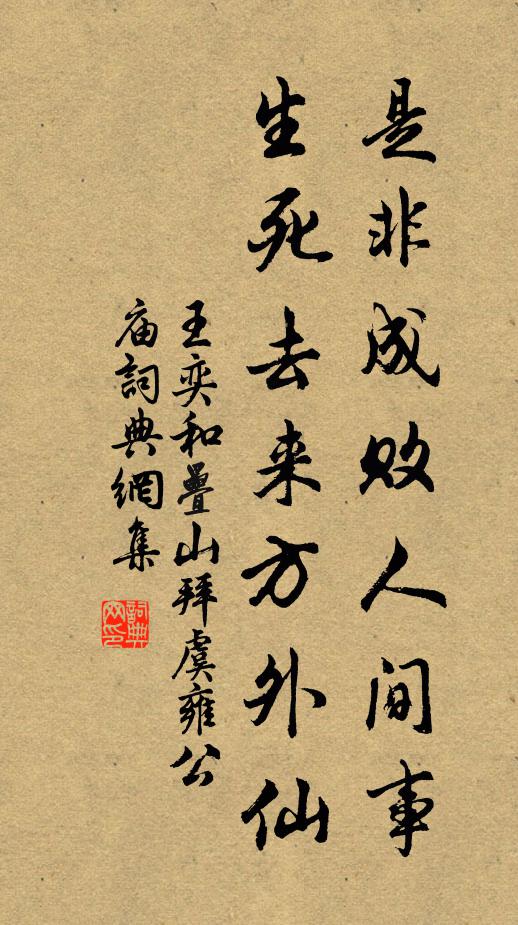 是非成败人间事
生死去来方外仙
王奕和疊山拜虞雍公
庙詞典網集
詞典
网印